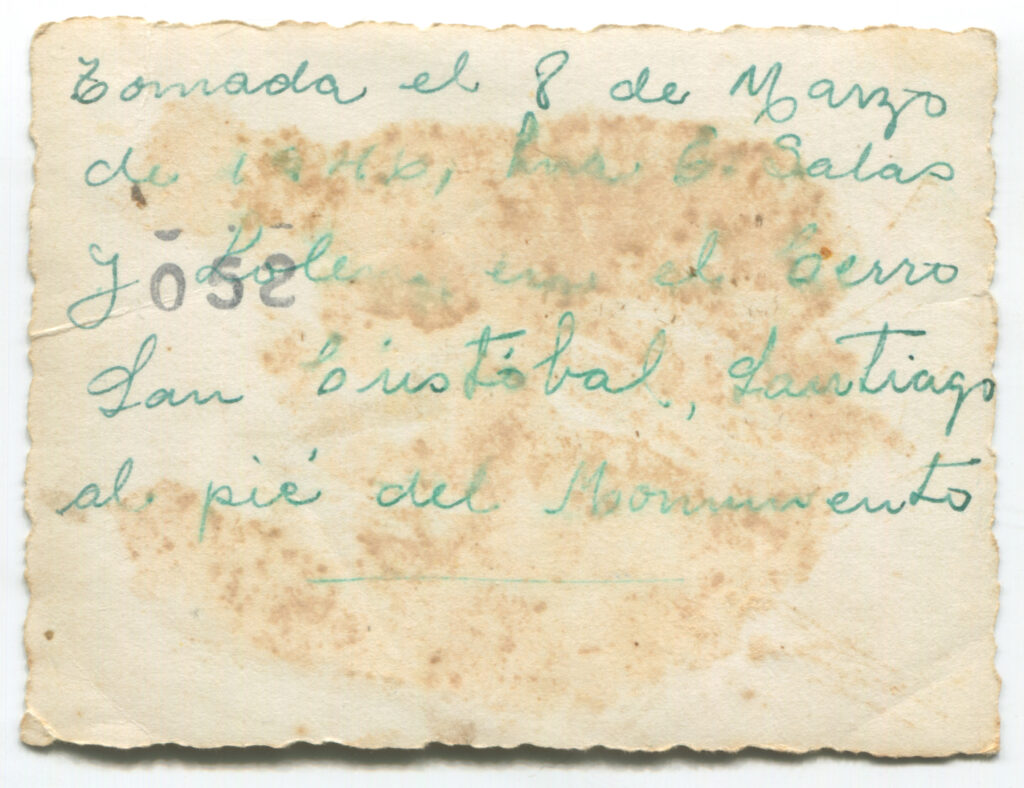 Tomada el 8 de Marzo
de 1946, G. Salas
y en el Cerro
052
San Cristóbal, Santiago
al pié del Monumento